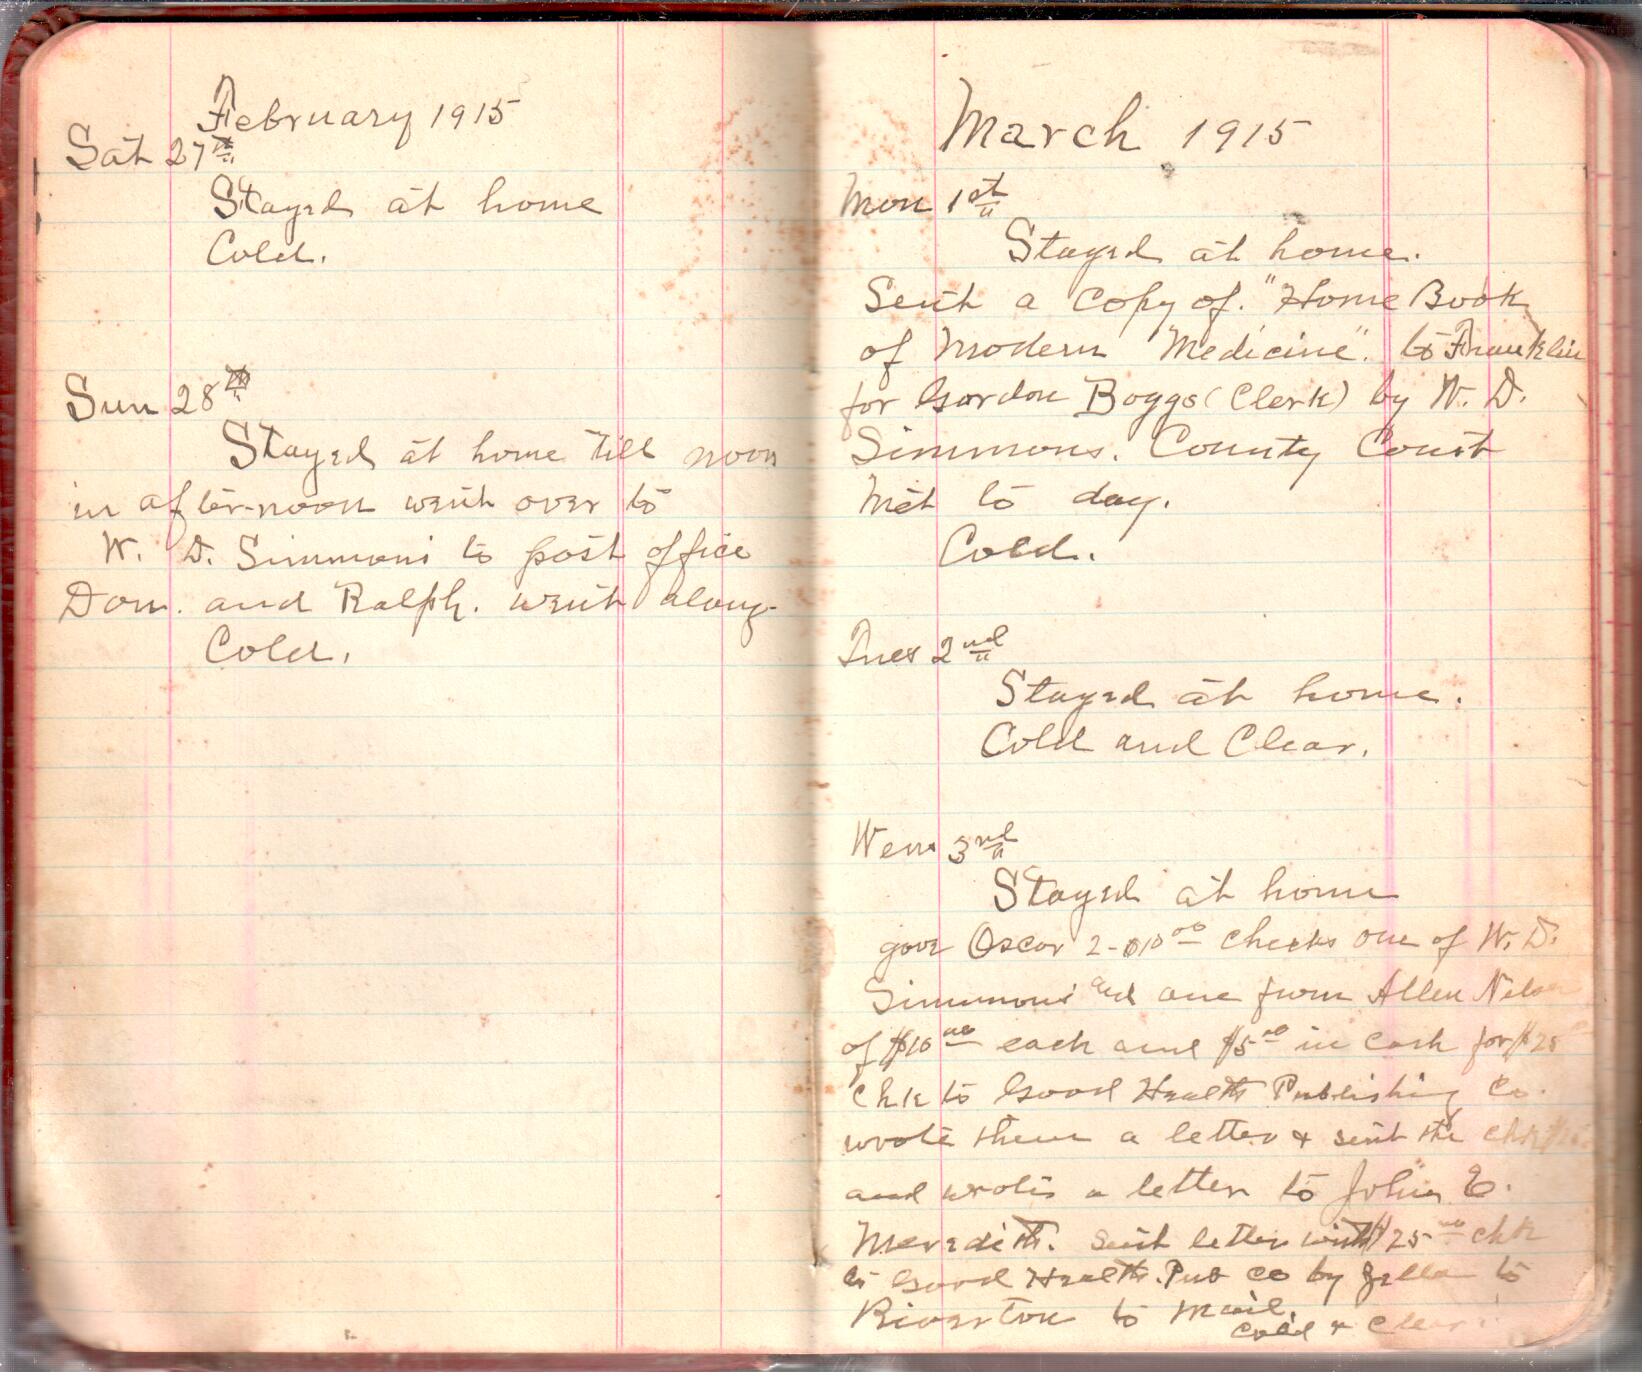 February 1915
Sat 27th
Stayed at home
Cold.
Sun 28th
Stayed at home till noon
in after-noon went over to
W. D. Simmons to post office
Don. and Ralph. went along
Cold.
March 1915
Mon 1st
Stayed at home.
Sent a Copy of "Home Book
of Modern Medicine". to Franklin
for Gordon Boggs (Clerk) by W. D.
Simmons. County Court
Met to day.
Cold.
Tues 2nd
Stayed at home.
Cold and Clear.
Wen 3rd
Stayed at home
gave Oscar 2-$10.00 checks one of W. D.
Simmons and one from Allen Nelson
of $10.00 each and $5.00 in cash for $25
chk to Good Health Publishing Co.
wrote them a letter & sent the chk
and wrote a letter to John E.
Meredith. Sent letter with $25.00 chk
to Good Health Pub Co by to
Riverton to mail.
Cold & Clear.